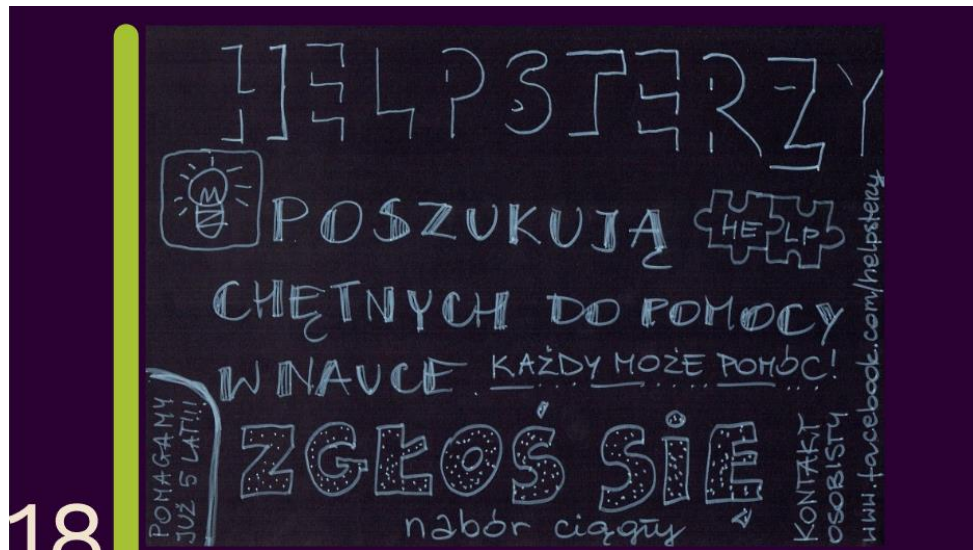 HELPSTERZY
POSZUKUJĄ
HELP
CHĘTNYCH DO POMOCY
W NAUCE KAŻDY MOŻE POMÓC!
POMAGAMY
JUŻ 5 LAT!!!
ZGŁOŚ SIĘ
nabór ciągły
KONTAKT
OSOBISTY
www.facebook.com/helpsterzy
18